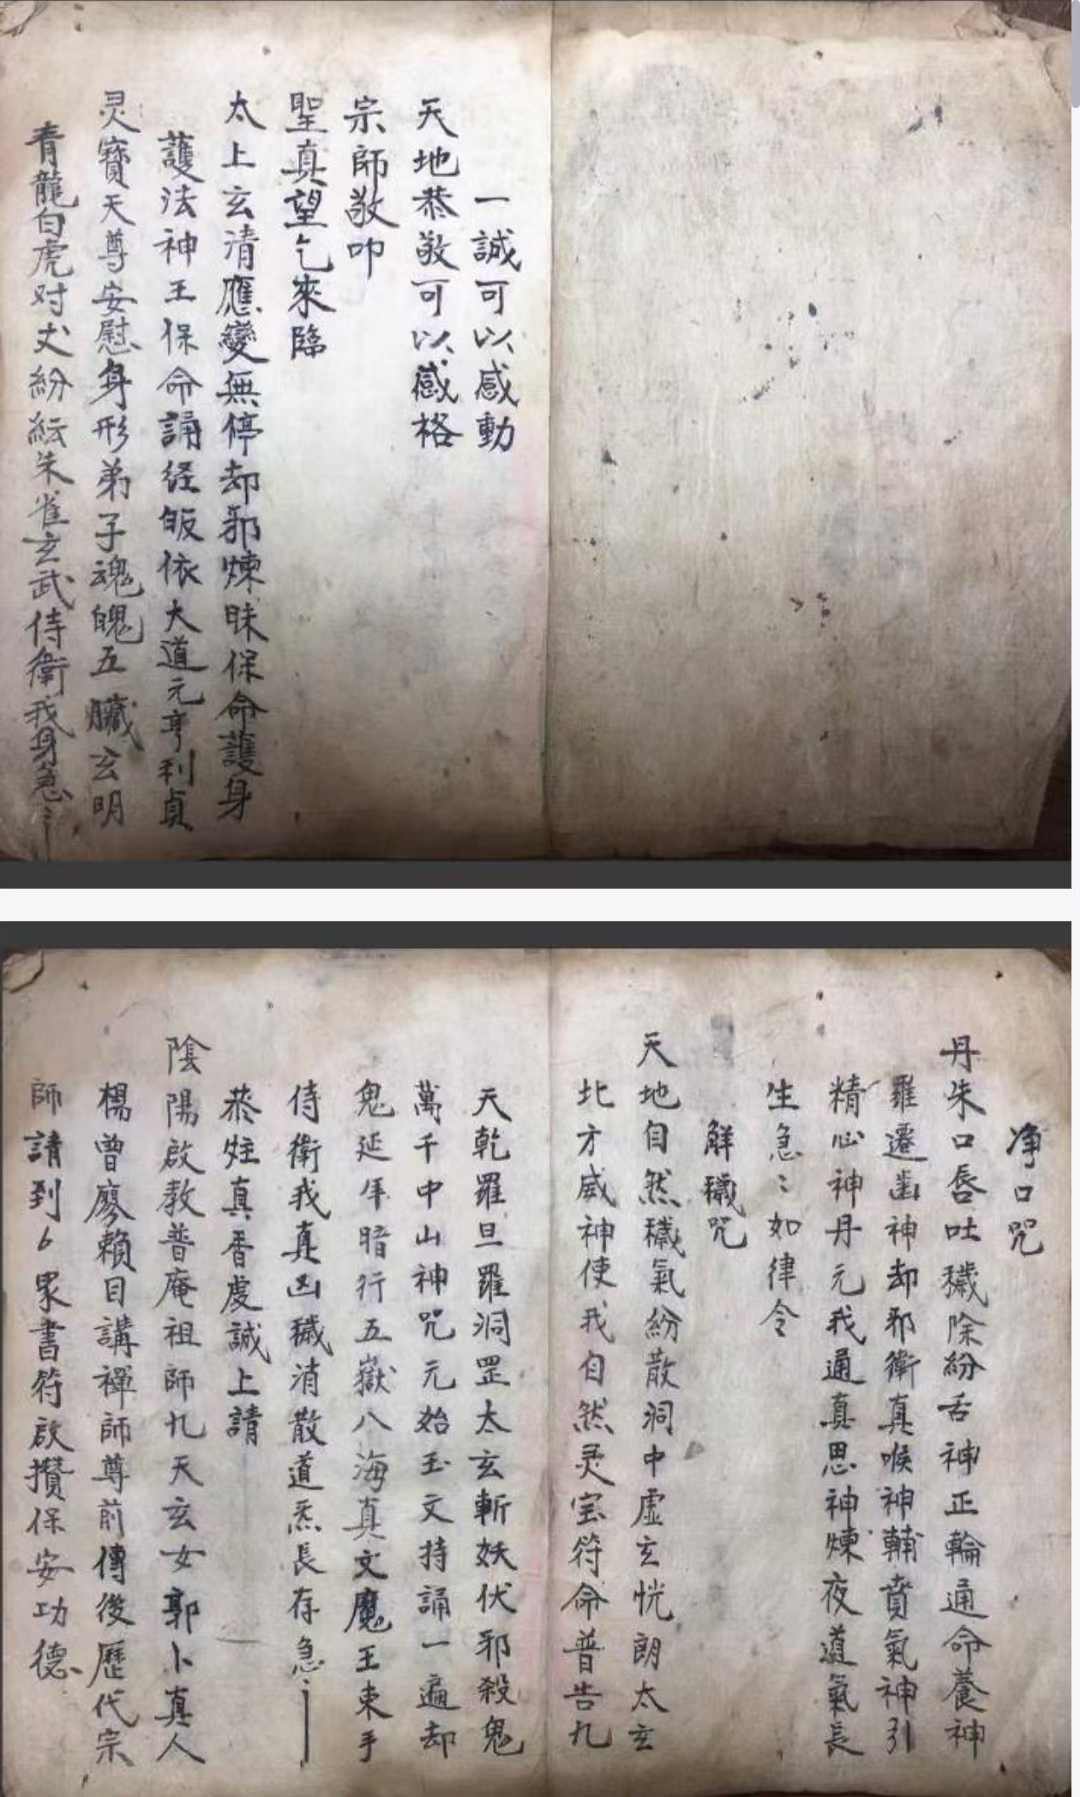 一誠可以感動
天地恭敬可以感格
宗師敬叩
聖真望乞來臨
太上玄清應變無停却邪煉昧保命護身
護法神王保命誦経皈依大道元亨利貞
灵寶天尊安慰身形弟子魂魄五臟玄明
青龍白虎对丈紛紜朱雀玄武侍衛我身急〻
净口咒
丹朱口唇吐穢除紛舌神正輪通命養神
羅遷齒神却邪衛真喉神輔賁氣神引
精心神丹元我通真思神煉夜道氣長
生急〻如律令
觧穢咒
天地自然穢氣紛散洞中虛玄恍朗太玄
北方威神使我自然灵宝符命普告九
天乾羅旦羅洞罡太玄斬妖伏邪殺鬼
萬千中山神咒元始玉文持誦一遍却
鬼延年暗行五嶽八海真文魔王束手
侍衛我真凶穢消散道炁長存急〻
恭炷真香虔誠上請
陰陽啟教普庵祖師九天玄女郭卜真人
楊曾廖賴目講禪師尊前傳後歷代宗
師請到6眾書符啟攢保安功德